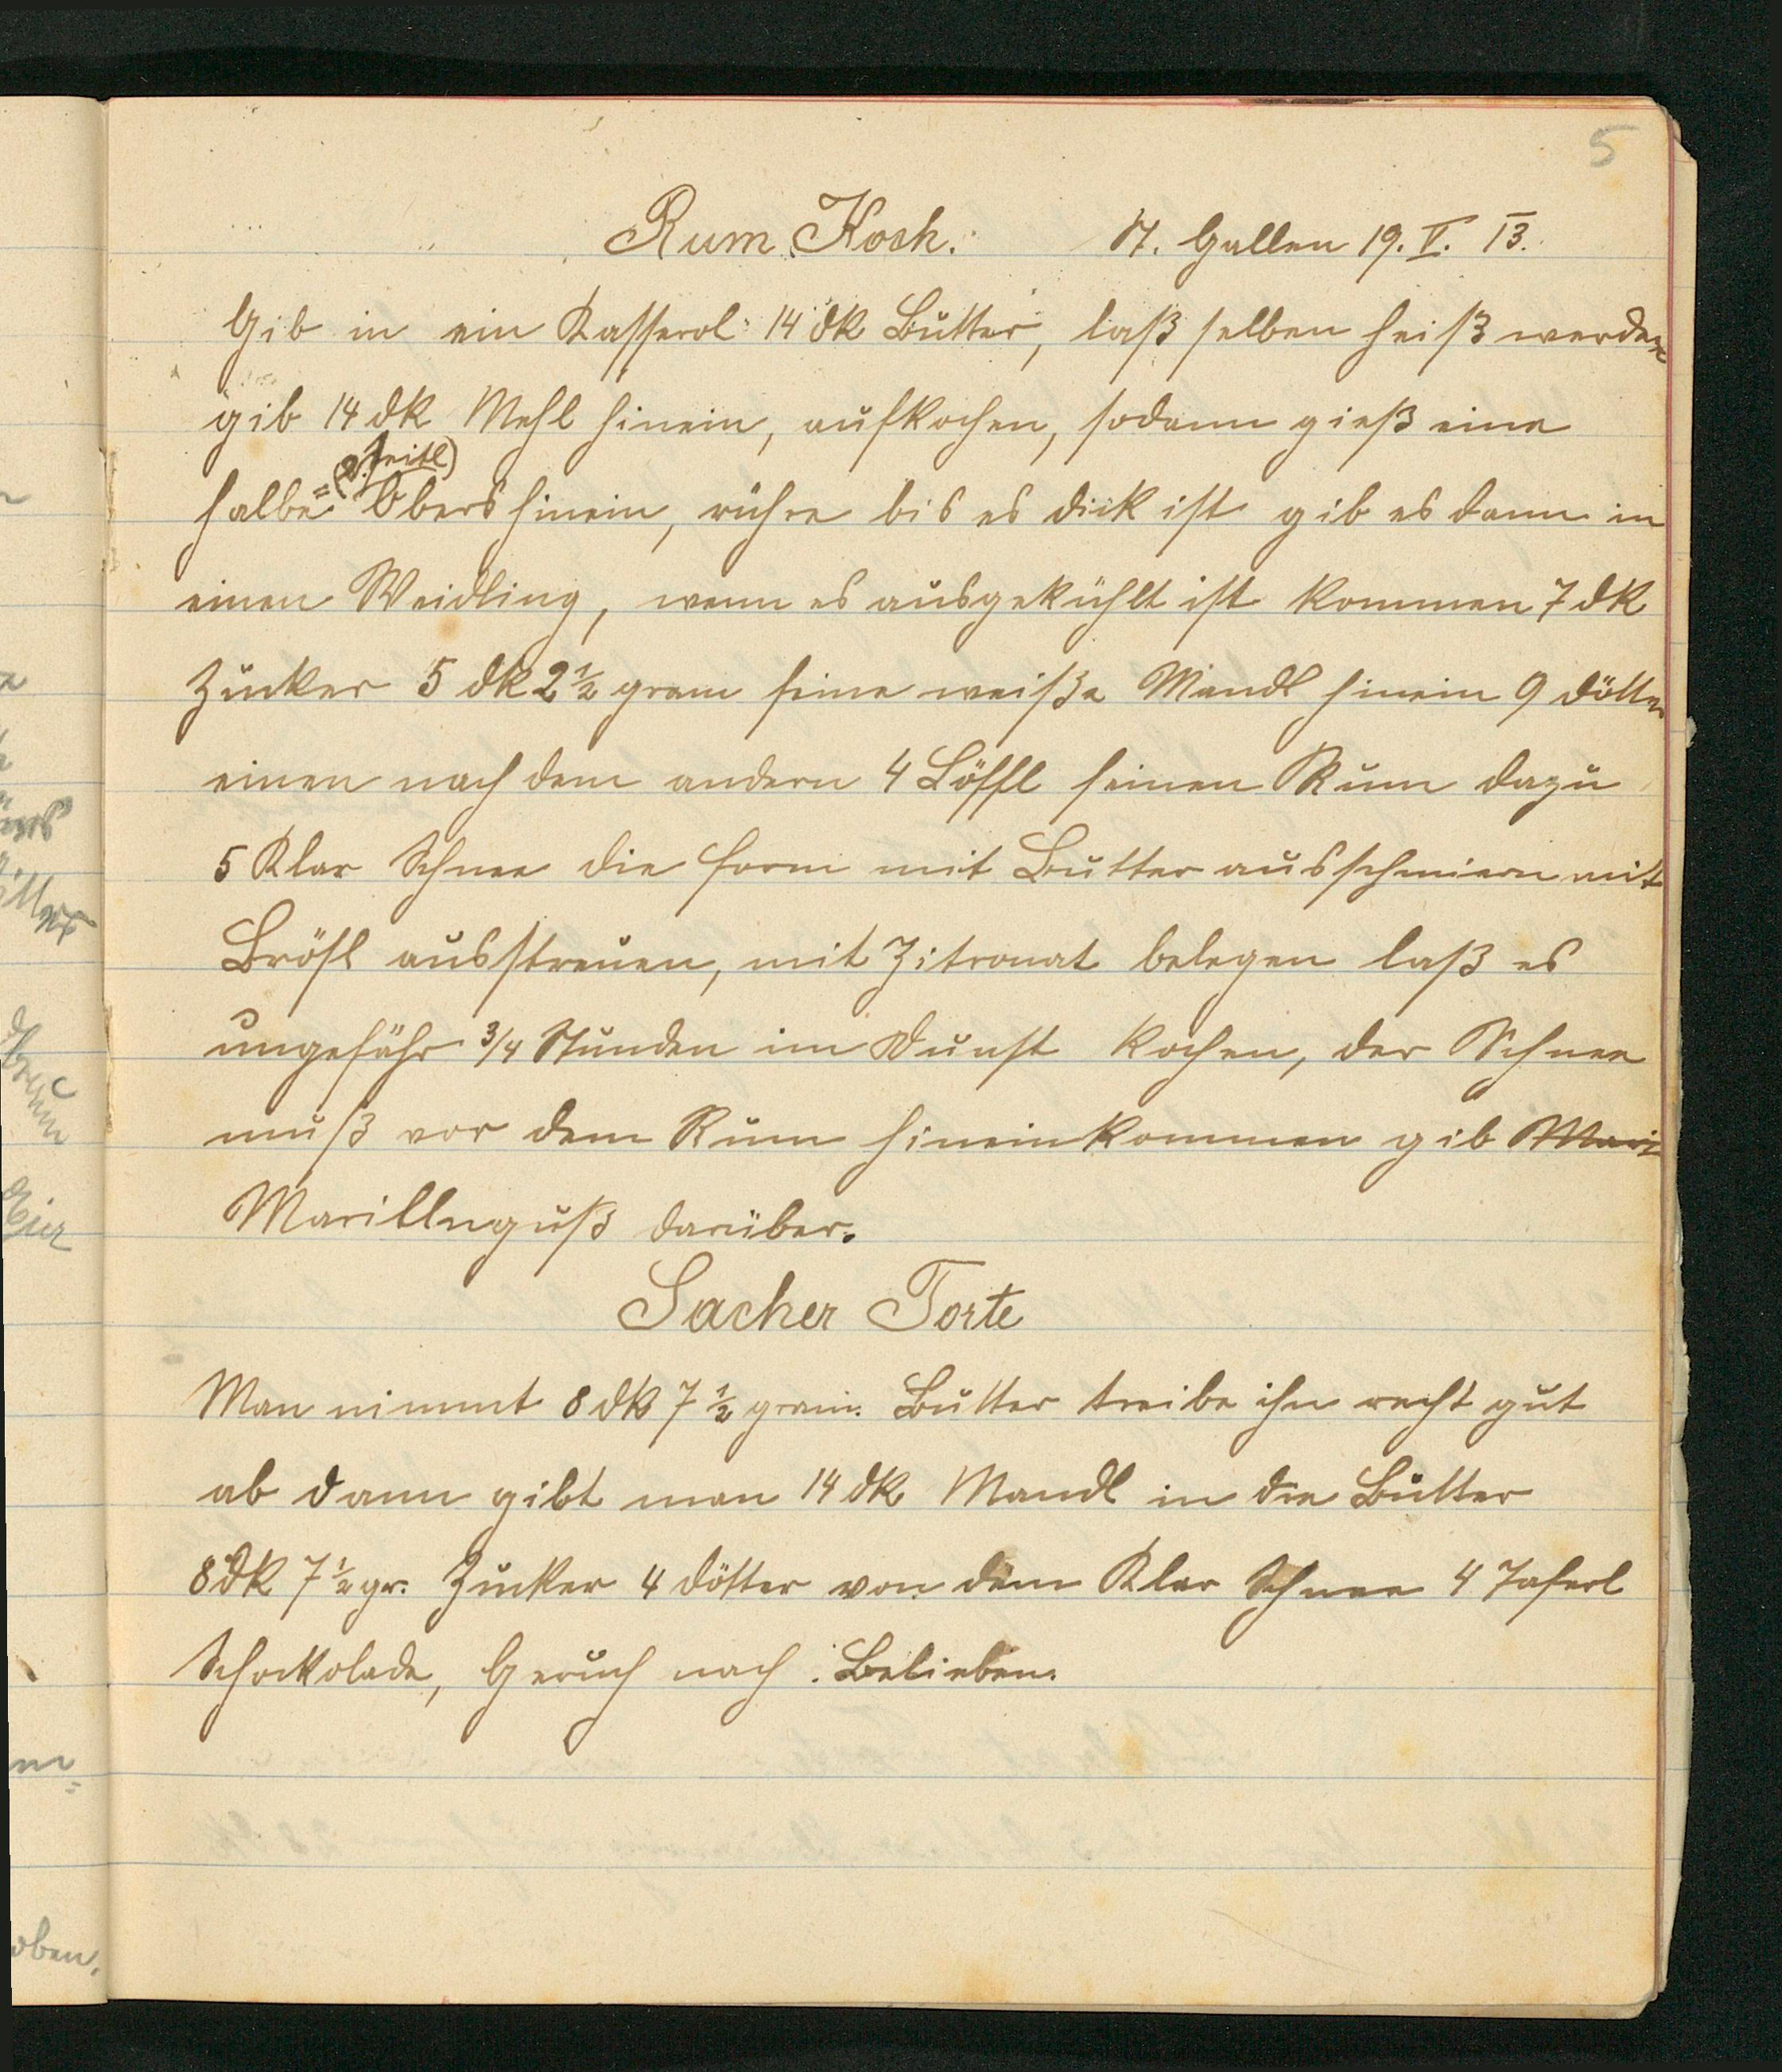 5
Rum Koch. St. Gallen 19. V. 13.
Gib in ein Kasserol 14 dk Butter, laß selben heiß werden
gib 14 dk Mehl hinein, aufkochen, sodann gieß eine
(2 Seitl)
halbe = Obers hinein, rühre bis es dick ist gib es dann in
einen Weidling, wenn es ausgekühlt ist kommen 7 dk
Zucker 5 dk 2 ½ gram feine weiße Mandl hinein 9 Dötter
einen nach dem andern 4 Löffl feinen Rum dazu
5 Klar Schnee die Form mit Butter ausschmiern mit
Brösl ausstreuen, mit Zitronat belegen laß es
ungefähr ¾ Stunden im Dunst kochen, der Schnee
muß vor dem Rum hineinkommen gib Mari
Marillnguß darüber.
Sacher Torte
Man nimmt 8 dk 7 ½ gram. Butter treibe ihn recht gut
ab dann gibt man 14 dk Mandl in die Butter
8 dk 7 ½ gr. Zucker 4 Dötter von dem Klar Schnee 4 Taferl
Schockolade, Geruch nach Belieben.
Eier
oben.